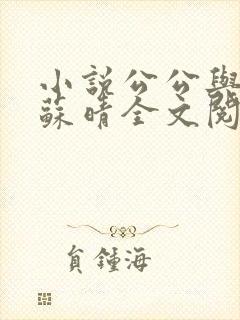 小說公公與
蘇晴全文閱
貟鍾海